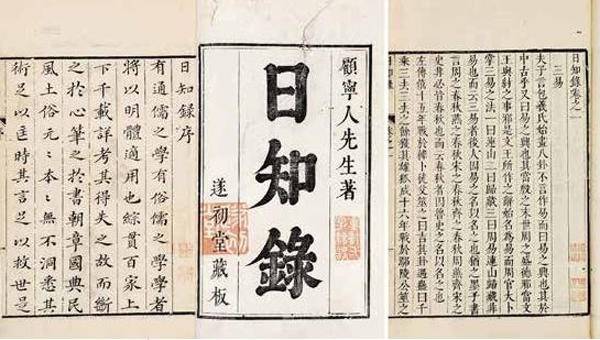 日知錄序
有通儒之學有俗儒之學學者
將以明體適用也綜貫百家上
下千載詳考其得失之故而斷
之於心筆之於書朝章國典民
風土俗元〻本〻無不洞悉其
術足以匡時其言足以救世是
顧寧人先生著
日知錄
遂初堂藏板
日知錄卷之一
三易
夫子言包羲氏始畫八卦不言作易而曰易之興也其於
中古乎又曰易之興也其當殷之末世周之盛德邪當文
王與紂之事邪是文王所作之辭始名為易而周官大卜
掌三易之法一曰連山二曰歸藏三曰周易連山歸藏非
易也而云三易者後人因易之名以名之也猶之墨子書
言周之春秋燕之春秋宋之春秋齊之春秋周燕齊宋之
史非必皆春秋也而云春秋者因魯史之名以名之也
左傳僖十五年戰於韓卜徒父筮之曰吉其卦遇蠱曰千
乘三去三去之餘獲其雄狐成十六年戰於鄢陵公筮之
日知錄 卷之一